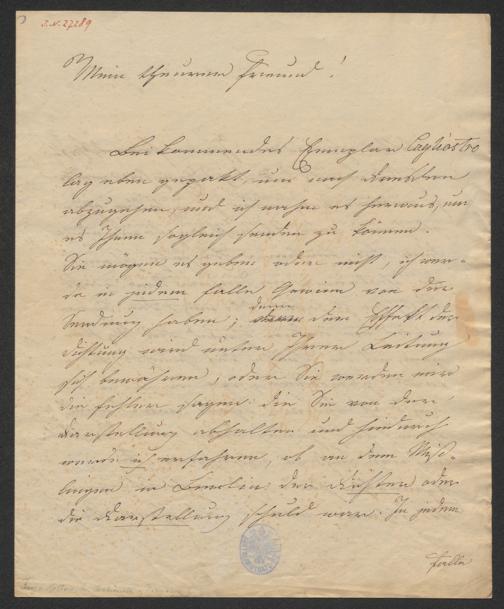 J.N. 27289
Mein theurer Freund!
Beikommendes Exemplar Cagliostro
lag eben gepakt, um nach Dresden
abzugehen, und ich nahm es heraus, um
es Ihnen sogleich senden zu können.
Sie mögen es geben oder nicht, ich wer-
de in jedem Falle Gewinn von der
Sendung haben; denn der Effekt der
Dichtung wird unter Ihrer Leitung
sich bewähren, oder Sie werden mir
die Fehler sagen die Sie von der
Darstellung abhalten und hiedurch
werde ich erfahren, ob an dem Miß-
lingen in Berlin der Dichter oder
die Darstellung schuld war. In jedem
Falle